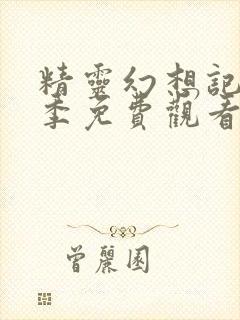 精靈幻想記
季免費觀看
曾麗園